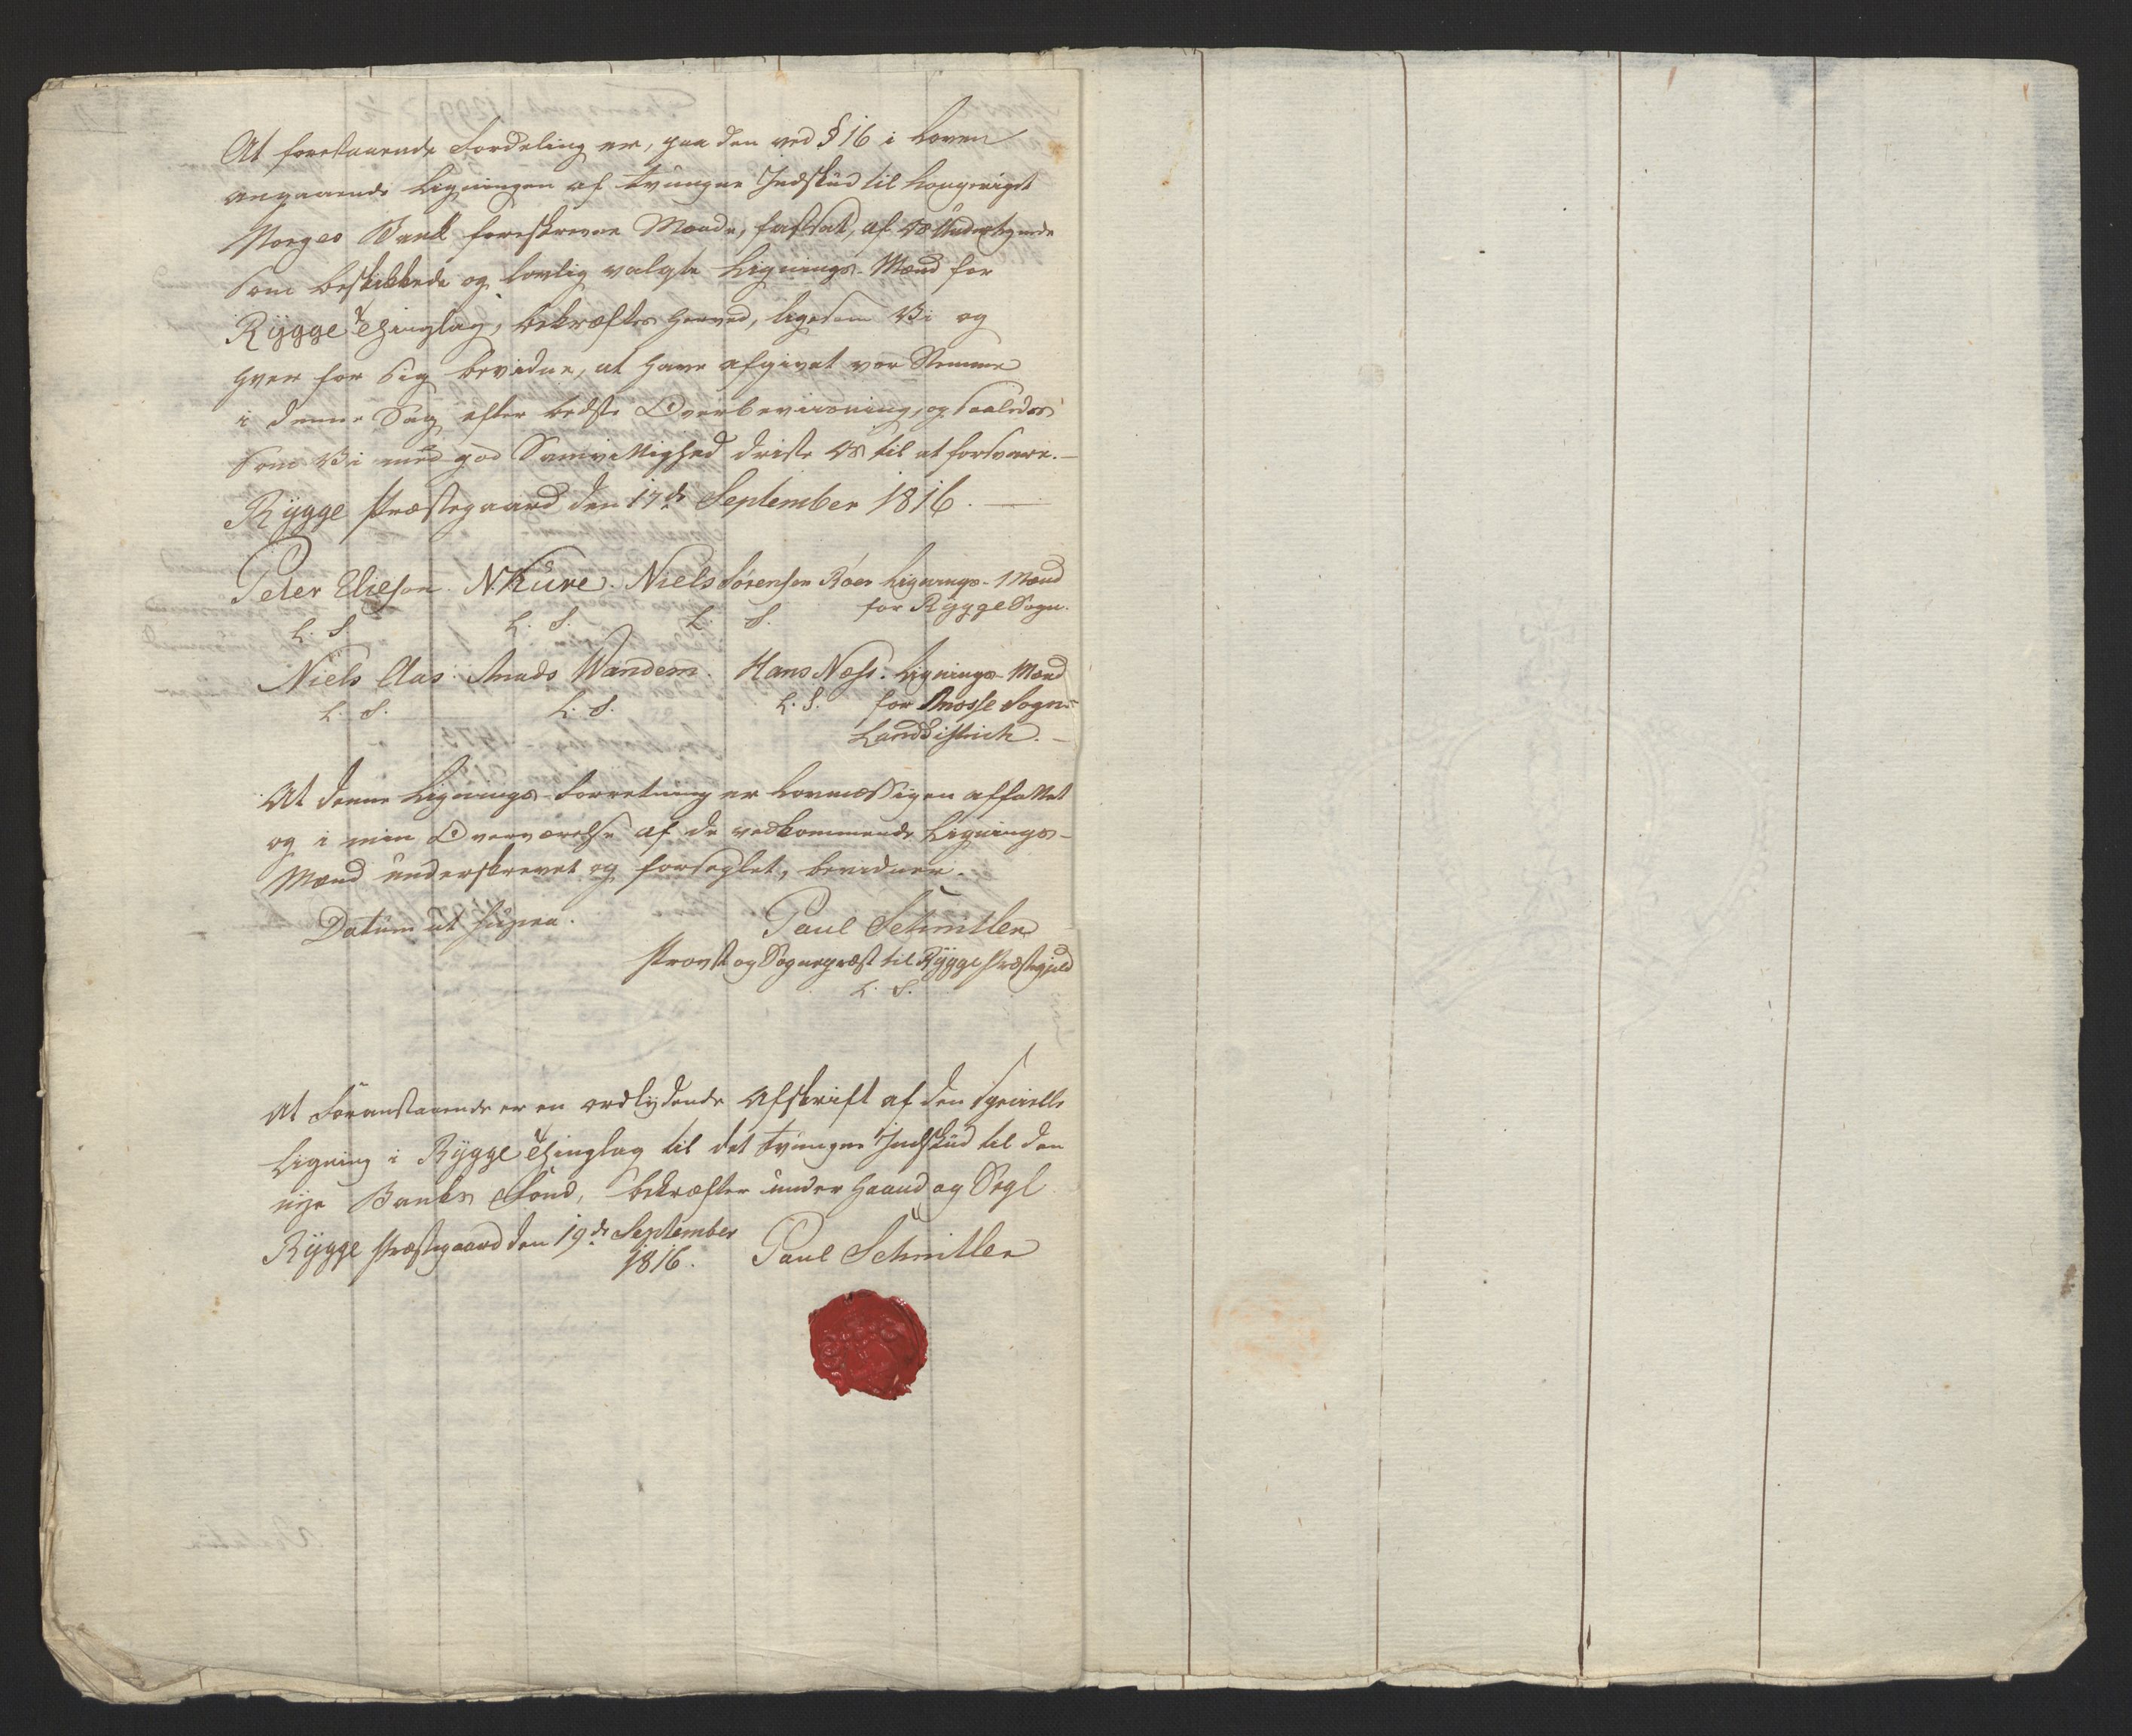 At forestaaende Fordeling er, paa den ved § 16 i Loven
angaaende Ligningen af tvungne Indskud til Kongeriget
Norges Bank foreskrevne Maade, fastsat, af os Undertegnede
som beskikkede og lovlig valgte Lignings-Mænd for
Rygge Thinglag, bekræftes herved, ligesom Vi og
hver for sig bevidne, at have afgivet vor Stemme
i denne Sag efter bedste Overbeviisning, og saaledes
som Vi med god Samvittighed driste os til at forsvare.
Rygge Præstegaard den 17de September 1816.
Peter Elieson. N. Kure. Niels Sørensen Roer Lignings-Mænd
for Rygge Sogn.
L. S. L. S. L. S.
Niels Aas. Mads Wandem. Hans Næss. Lignings-Mænd
L. S. L. S. L. S. for Mosse Sogns
Landdistrict.
At denne Lignings-Forretning er lovmæssigen affattet
og i min Overværelse af de vedkommende Lignings-
Mænd underskrevet og forseglet, bevidner.
Datum ut supra. Paul Schmitler
Provst og Sognepræst til Rygge Præstegjeld
L. S.
At Foranstaaende er en ordlydende Afskrift af den specielle
Ligning i Rygge Thinglag til det tvungne Indskud til den
nye Banks Fond, bekræfter under Haand og Segl
Rygge Præstegaard den 19de September
1816. Paul Schmitler